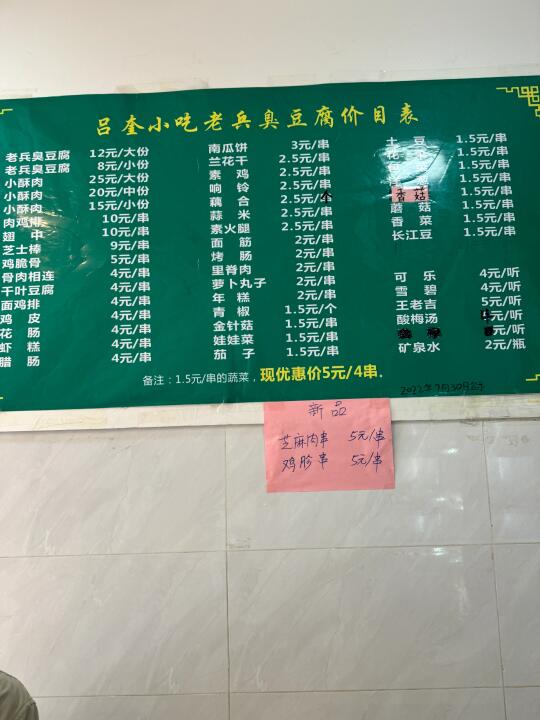 吕奎小吃老兵臭豆腐价目表
老兵臭豆腐 12元/大份
老兵臭豆腐 8元/小份
小酥肉 25元/大份
小酥肉 20元/中份
小酥肉 15元/小份
肉鸡排 10元/串
翅 中 10元/串
芝士棒 9元/串
鸡脆骨 5元/串
骨肉相连 4元/串
千叶豆腐 4元/串
面鸡排 4元/串
鸡 皮 4元/串
花 肠 4元/串
虾 糕 4元/串
腊 肠 4元/串
南瓜饼 3元/串
兰花干 2.5元/串
素 鸡 2.5元/串
响 铃 2.5元/串
藕 合 2.5元/个
蒜 米 2.5元/串
素火腿 2.5元/串
面 筋 2元/串
烤 肠 2元/串
里脊肉 2元/串
萝卜丸子 2元/串
年 糕 2元/串
青 椒 1.5元/个
金针菇 1.5元/串
娃娃菜 1.5元/串
茄 子 1.5元/串
土 豆 1.5元/串
花 1.5元/串
1.5元/串
1.5元/串
香 菇 1.5元/串
蘑 菇 1.5元/串
香 菜 1.5元/串
长江豆 1.5元/串
可 乐 4元/听
雪 碧 4元/听
王老吉 5元/听
酸梅汤 元/听
元/听
矿泉水 2元/瓶
备注：1.5元/串的蔬菜，现优惠价5元/4串.
2022年7月30日
新品
芝麻肉串 5元/串
鸡胗串 5元/串